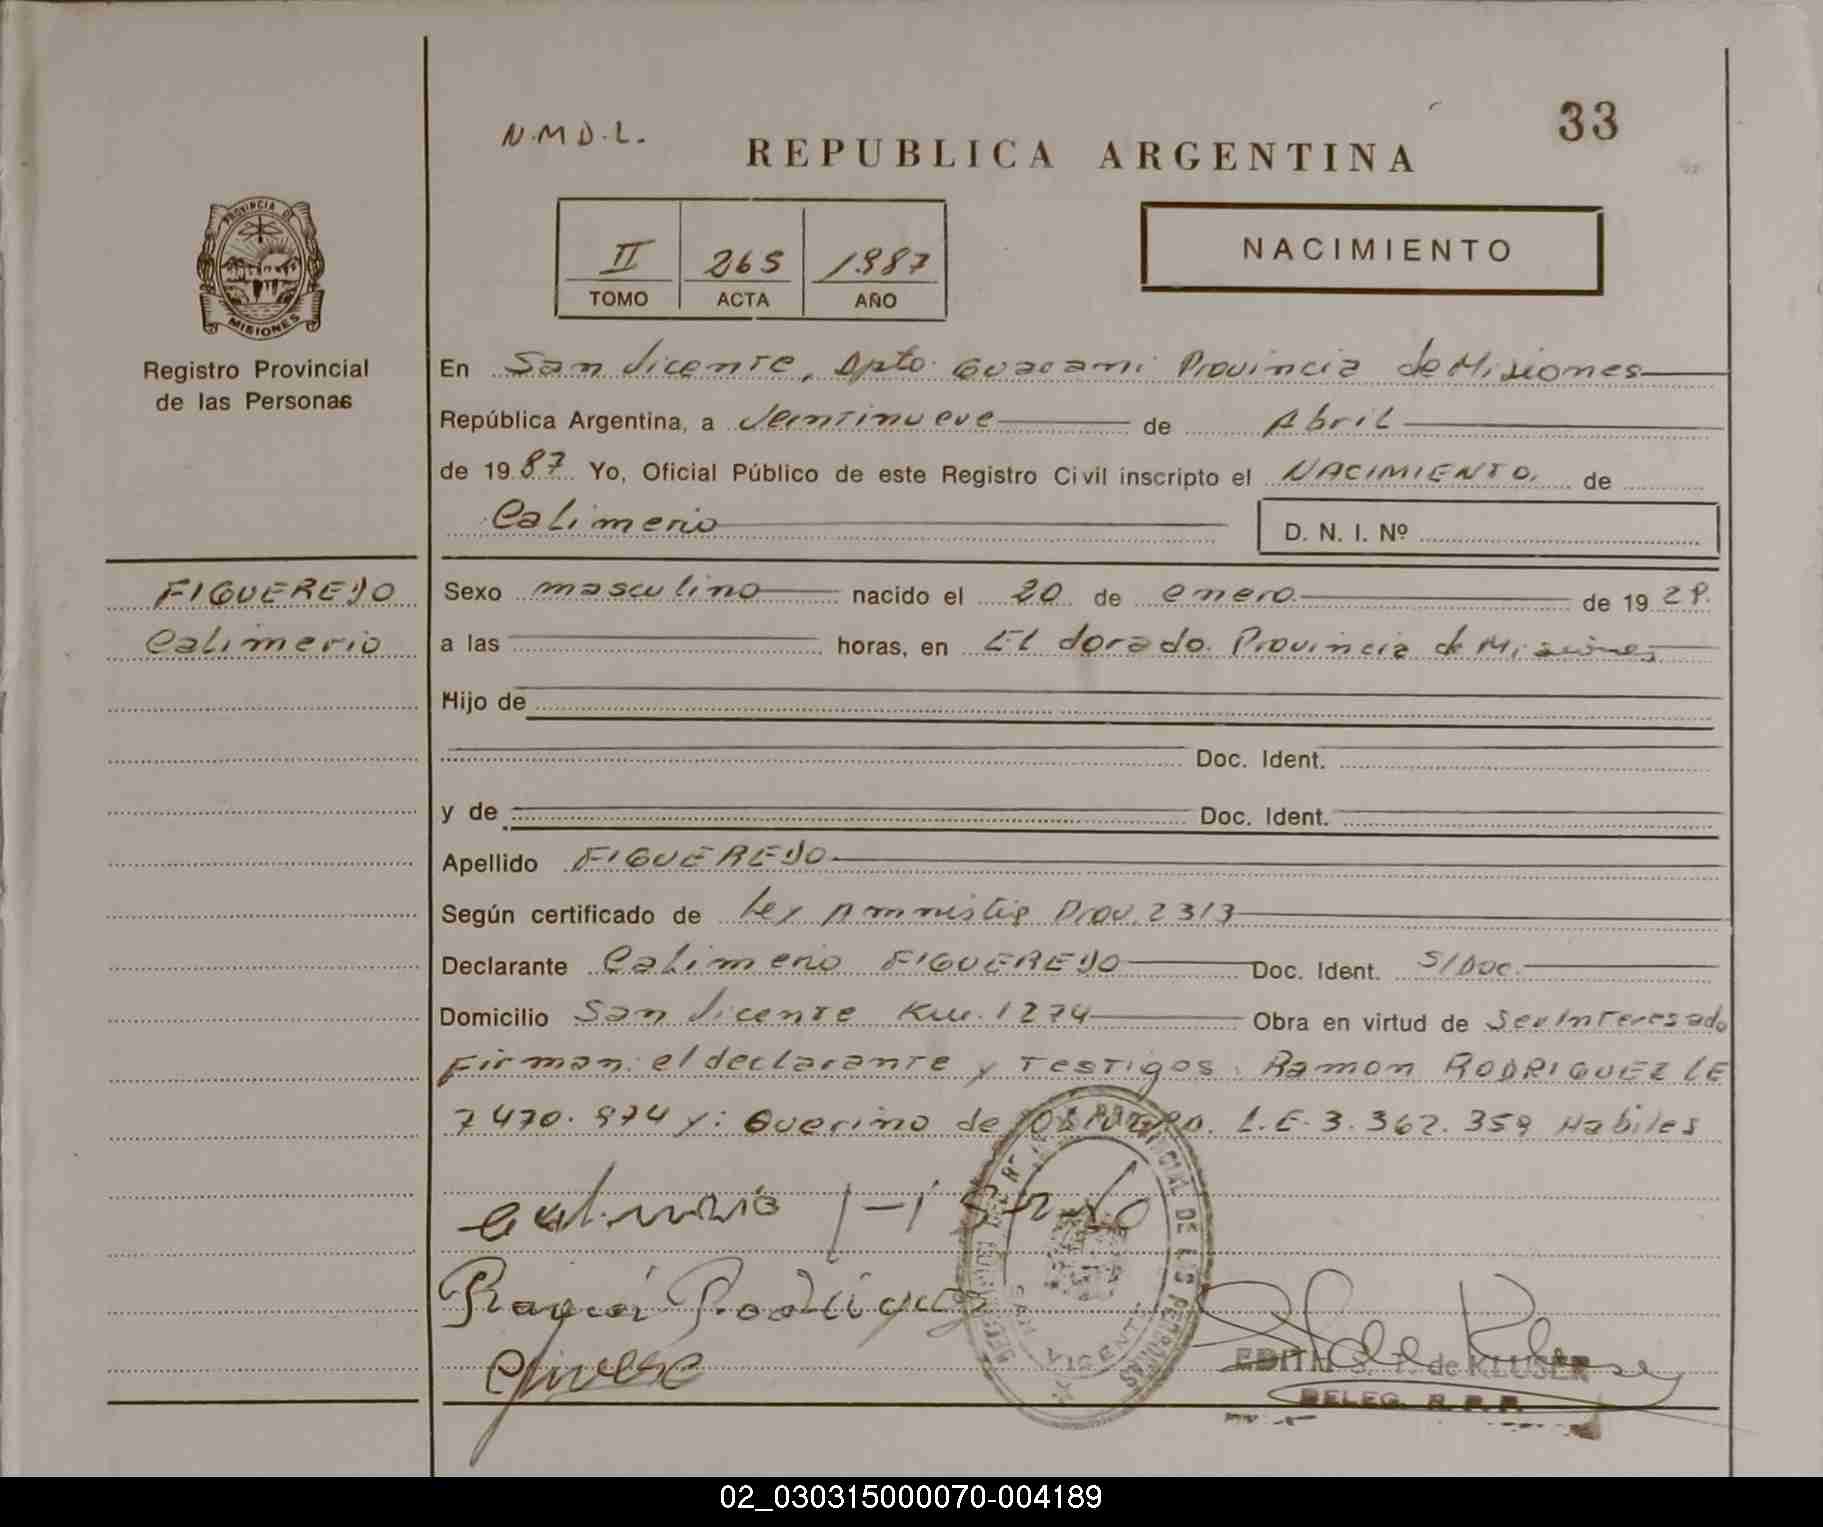 33
N.M.D.L.
REPUBLICA ARGENTINA
II 265 1987
TOMO ACTA AÑO
NACIMIENTO
PROVINCIA DE
MISIONES
Registro Provincial
de las Personas
En San Vicente, Dpto. Guacami Provincia de Misiones
República Argentina, a Veintinueve de Abril
de 19 87 Yo, Oficial Público de este Registro Civil inscripto el NACIMIENTO. de
Calimerio
D. N. I. Nº
FIGUEREDO
Calimerio
Sexo masculino nacido el 20 de enero de 19
a las horas, en El dorado. Provincia de Misiones
Hijo de
Doc. Ident.
y de Doc. Ident.
Apellido FIGUEREDO
Según certificado de Ley Amnistia Prov. 2313
Declarante Calimerio FIGUEREDO Doc. Ident. S/Doc.
Domicilio San Vicente Km. 1274 Obra en virtud de Ser Interesado
Firman: el declarante y Testigos: Ramon RODRIGUEZ LE
7470.974 y: Guerino de L.E. 3.362.359 Habiles
Ramón Rodriguez
SAN VICENTE
EDITH de KLUSER
DELEG. R. P. P.
02_030315000070-004189